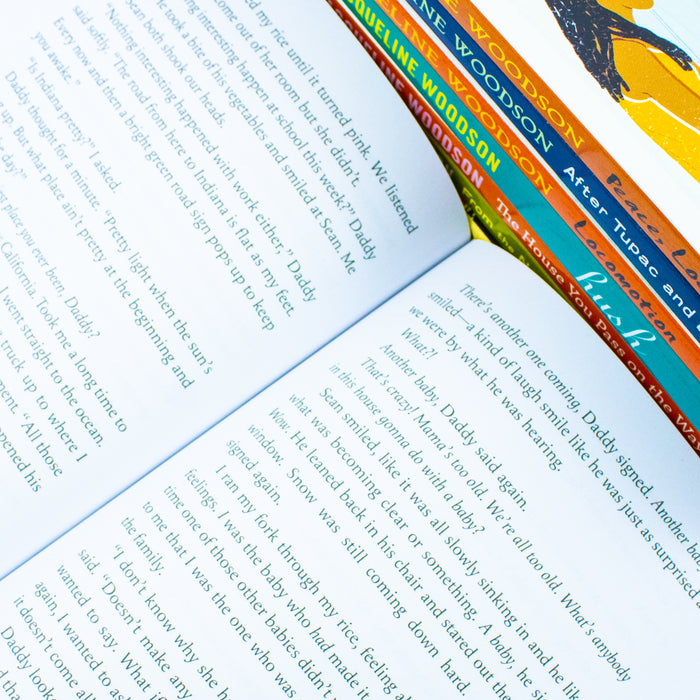 my rice until it turned pink. We listened
come out of her room but she didn't.
ng interesting happen at school this week?" Daddy
He took a bite of his vegetables and smiled at Sean. Me
Sean both shook our heads.
"Nothing interesting happened with work either," Daddy
said softly. "The road from here to Indiana is flat as my feet.
Every now and then a bright green road sign pops up to keep
you awake."
"Is Indiana pretty?" I asked.
Daddy thought for a minute. "Pretty light when the sun's
g up. But what place ain't pretty at the beginning and
day?"
place you ever been, Daddy?
California. Took me a long time to
I went straight to the ocean.
truck up to where I
"All those
opened his
There's another one coming, Daddy signed. Another bab
smiled—a kind of laugh smile like he was just as surprised
we were by what he was hearing.
What?!
Another baby, Daddy said again.
That's crazy! Mama's too old. We're all too old. What's anybody
in this house gonna do with a baby?
Sean smiled, like it was all slowly sinking in and he
what was becoming clear or something. A baby, he s
Wow. He leaned back in his chair and stared out the
window. Snow was still coming down hard.
signed again.
I ran my fork through my rice, feeling all
feelings. I was the baby who had made it
time one of those other babies didn't
to me that I was the one who was
the family.
"I don't know why she h
said. "Doesn't make any
wanted to say. What i
again, I wanted to as
it doesn't come all
Daddy look
WOODSON
Peace, Lo
WOODSON
After Tupac and
LINE WOODSON
Locomotion
CQUELINE WOODSON
hush
QUELINE WOODSON
The House You Pass on the Way
From the N